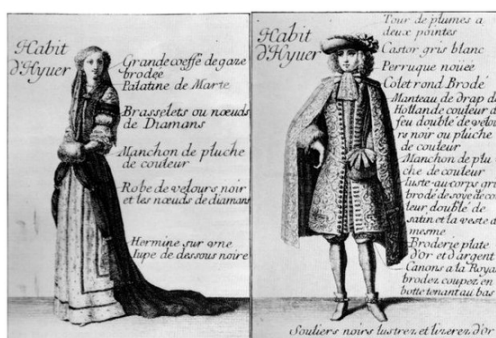 Habit
d'Hyuer
Grande coeffe de gaze
brodée
Palatine de Marte
Brasselets ou nœuds
de Diamans
Manchon de pluche
de couleur
Robe de velours noir
et les nœuds de diamans
Hermine sur vne
Iupe de dessous noire
Habit
d'Hyuer
Tour de plumes a
deux pointes
Castor gris blanc
Perruque noüée
Colet rond Brodé
Manteau de drap de
Hollande couleur de
feu doublé de velou
rs noir ou pluche
de couleur
Manchon de plu
che de couleur
Iuste au corps gris
brodé de soye de cou
leur doublé de
satin et la veste de
mesme
Broderie plate
d'or et d'argent
Canons a la Royale
brodez coupez en
botte tenant au bas
Souliers noirs lustrez et lizerez d'or